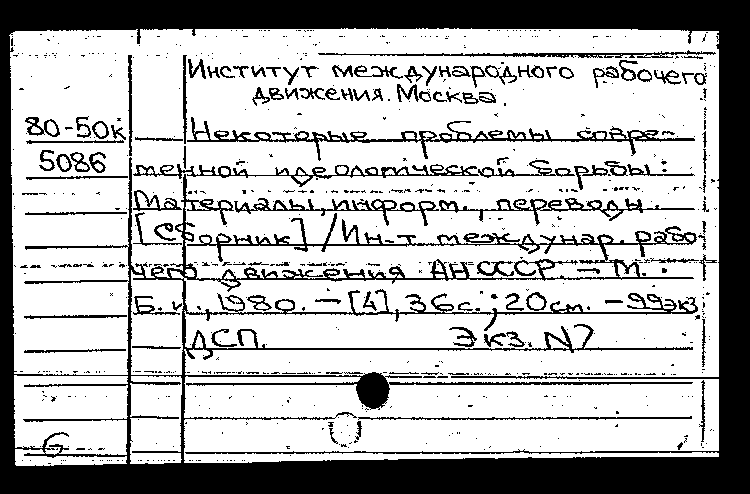 Институт международного рабочего
движения. Москва.
80-50к Некоторые проблемы совре-
5086 менной идеологической борьбы:
Материалы, информ., переводы.
[Сборник] / Ин-т междунар. рабо-
чего движения АН СССР. — М.:
Б. и., 1980. — [4], 36 с.; 20 см. — 99 экз.
ДСП. Экз. N7